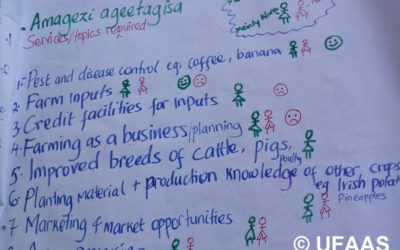 Amagezi ageetagisa
Services/topics required
mainly
1. Pest and disease control eg: coffee, banana
2. Farm Inputs
3. Credit facilities for inputs
4. Farming as a business/planning
5. Improved breeds of cattle, pigs, Poultry
6. Planting material + production knowledge of other crops
eg Irish potat
Pineapples
7 Marketing & market opportunities
© UFAAS